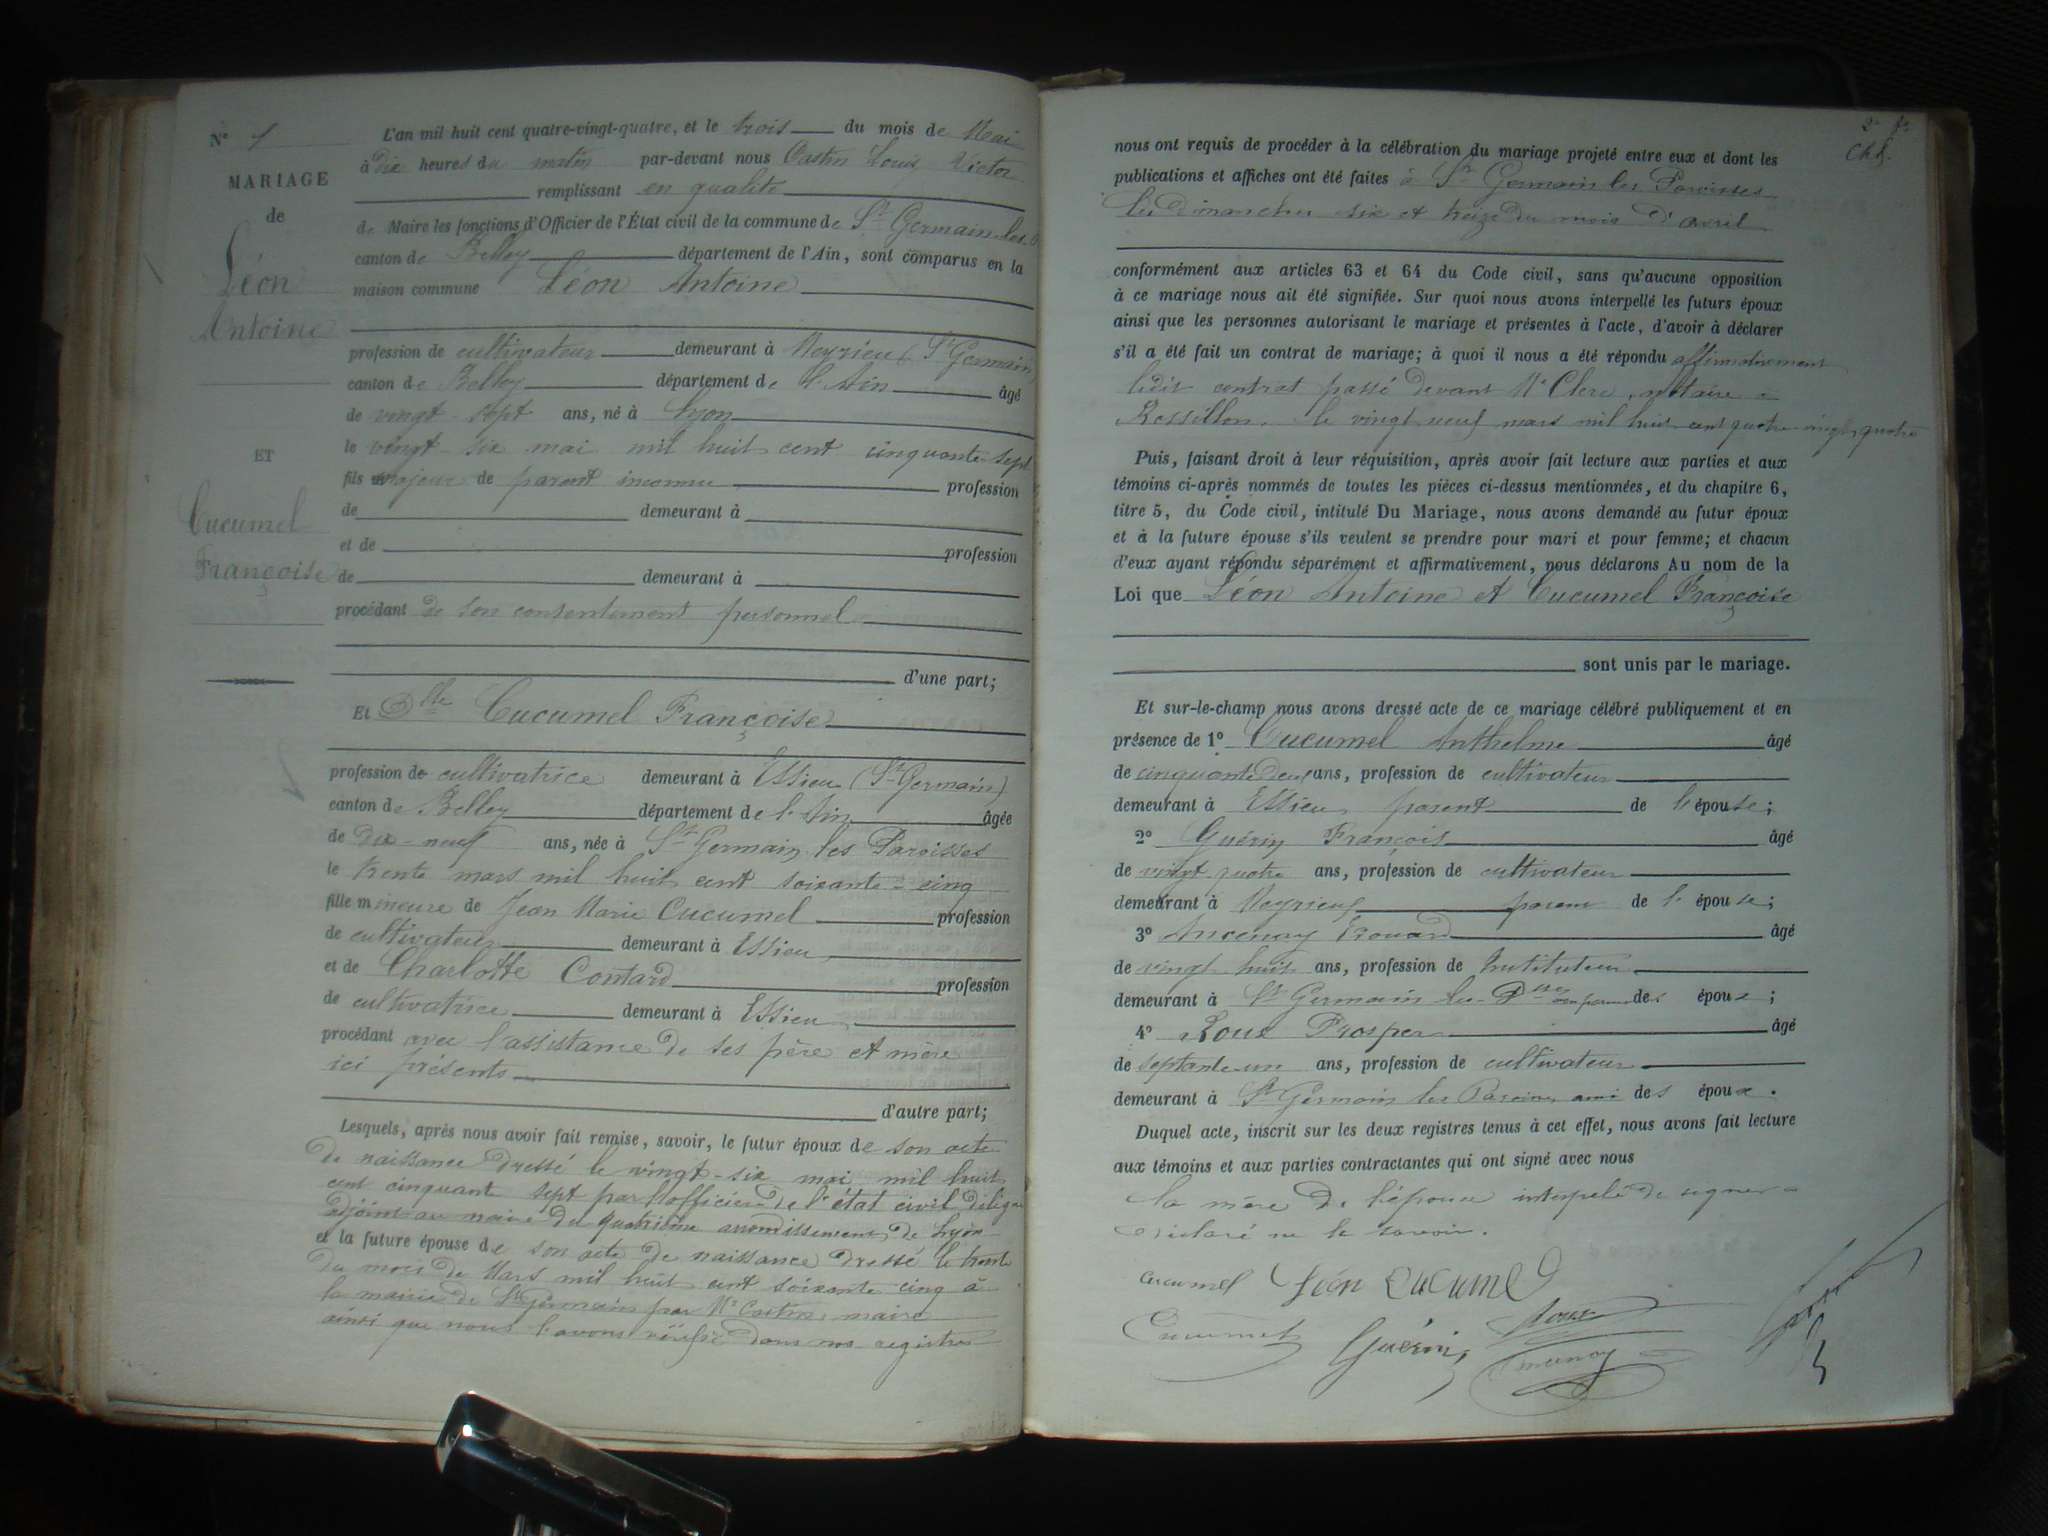 N° 7
MARIAGE
de
Léon
Antoine
ET
Cucumel
Françoise
L'an mil huit cent quatre-vingt-quatre, et le trois du mois de Mai
à dix heures du matin par-devant nous Castin Louis Victor
remplissant en qualité
de Maire les fonctions d'Officier de l'État civil de la commune de St Germain les
canton de Belley département de l'Ain, sont comparus en la
maison commune Léon Antoine
profession de cultivateur demeurant à Meyrieu (St Germain)
canton de Belley département de l'Ain âgé
de vingt-sept ans, né à Lyon
le vingt-six mai mil huit cent cinquante-sept
fils majeur de parent inconnu profession
de demeurant à
et de profession
de demeurant à
procédant de son consentement personnel
d'une part;
Et Dlle Cucumel Françoise
profession de cultivatrice demeurant à Essieu (St Germain)
canton de Belley département de l'Ain âgée
de dix-neuf ans, née à St Germain les Paroisses
le trente mars mil huit cent soixante-cinq
fille mineure de Jean Marie Cucumel profession
de cultivateur demeurant à Essieu
et de Charlotte Contard profession
de cultivatrice demeurant à Essieu
procédant avec l'assistance de ses père et mère
ici présents
d'autre part;
Lesquels, après nous avoir fait remise, savoir, le futur époux de son acte
de naissance dressé le vingt-six mai mil huit
cent cinquante sept par l'officier de l'état civil délégué
adjoint au maire du quatrième arrondissement de Lyon
et la future épouse de son acte de naissance dressé le trente
du mois de Mars mil huit cent soixante cinq à
la mairie de St Germain par Mr Castin, maire
ainsi que nous l'avons vérifié dans nos registres
nous ont requis de procéder à la célébration du mariage projeté entre eux et dont les
publications et affiches ont été faites à St Germain les Paroisses
les dimanches six et treize du mois d'avril
conformément aux articles 63 et 64 du Code civil, sans qu'aucune opposition
à ce mariage nous ait été signifiée. Sur quoi nous avons interpellé les futurs époux
ainsi que les personnes autorisant le mariage et présentes à l'acte, d'avoir à déclarer
s'il a été fait un contrat de mariage; à quoi il nous a été répondu affirmativement
ledit contrat passé devant Me Clerc, notaire à
Rossillon, le vingt neuf mars mil huit cent quatre vingt quatre
Puis, faisant droit à leur réquisition, après avoir fait lecture aux parties et aux
témoins ci-après nommés de toutes les pièces ci-dessus mentionnées, et du chapitre 6,
titre 5, du Code civil, intitulé Du Mariage, nous avons demandé au futur époux
et à la future épouse s'ils veulent se prendre pour mari et pour femme; et chacun
d'eux ayant répondu séparément et affirmativement, nous déclarons Au nom de la
Loi que Léon Antoine et Cucumel Françoise
sont unis par le mariage.
Et sur-le-champ nous avons dressé acte de ce mariage célébré publiquement et en
présence de 1° Cucumel Anthelme âgé
de cinquante deux ans, profession de cultivateur
demeurant à Essieu, parent de l'épouse;
2° Guérin François âgé
de vingt quatre ans, profession de cultivateur
demeurant à Meyrieu parent de l'épouse;
3° Ancenay Edouard âgé
de vingt huit ans, profession de Instituteur
demeurant à St Germain les Psses non parent des époux;
4° Roux Prosper âgé
de septante-un ans, profession de cultivateur
demeurant à St Germain les Paroisses ami des époux.
Duquel acte, inscrit sur les deux registres tenus à cet effet, nous avons fait lecture
aux témoins et aux parties contractantes qui ont signé avec nous
la mère de l'épouse interpelé de signer a
déclaré ne le savoir.
cucumel Léon Cucumel
Cucumel Guérin Roux
Ancenay